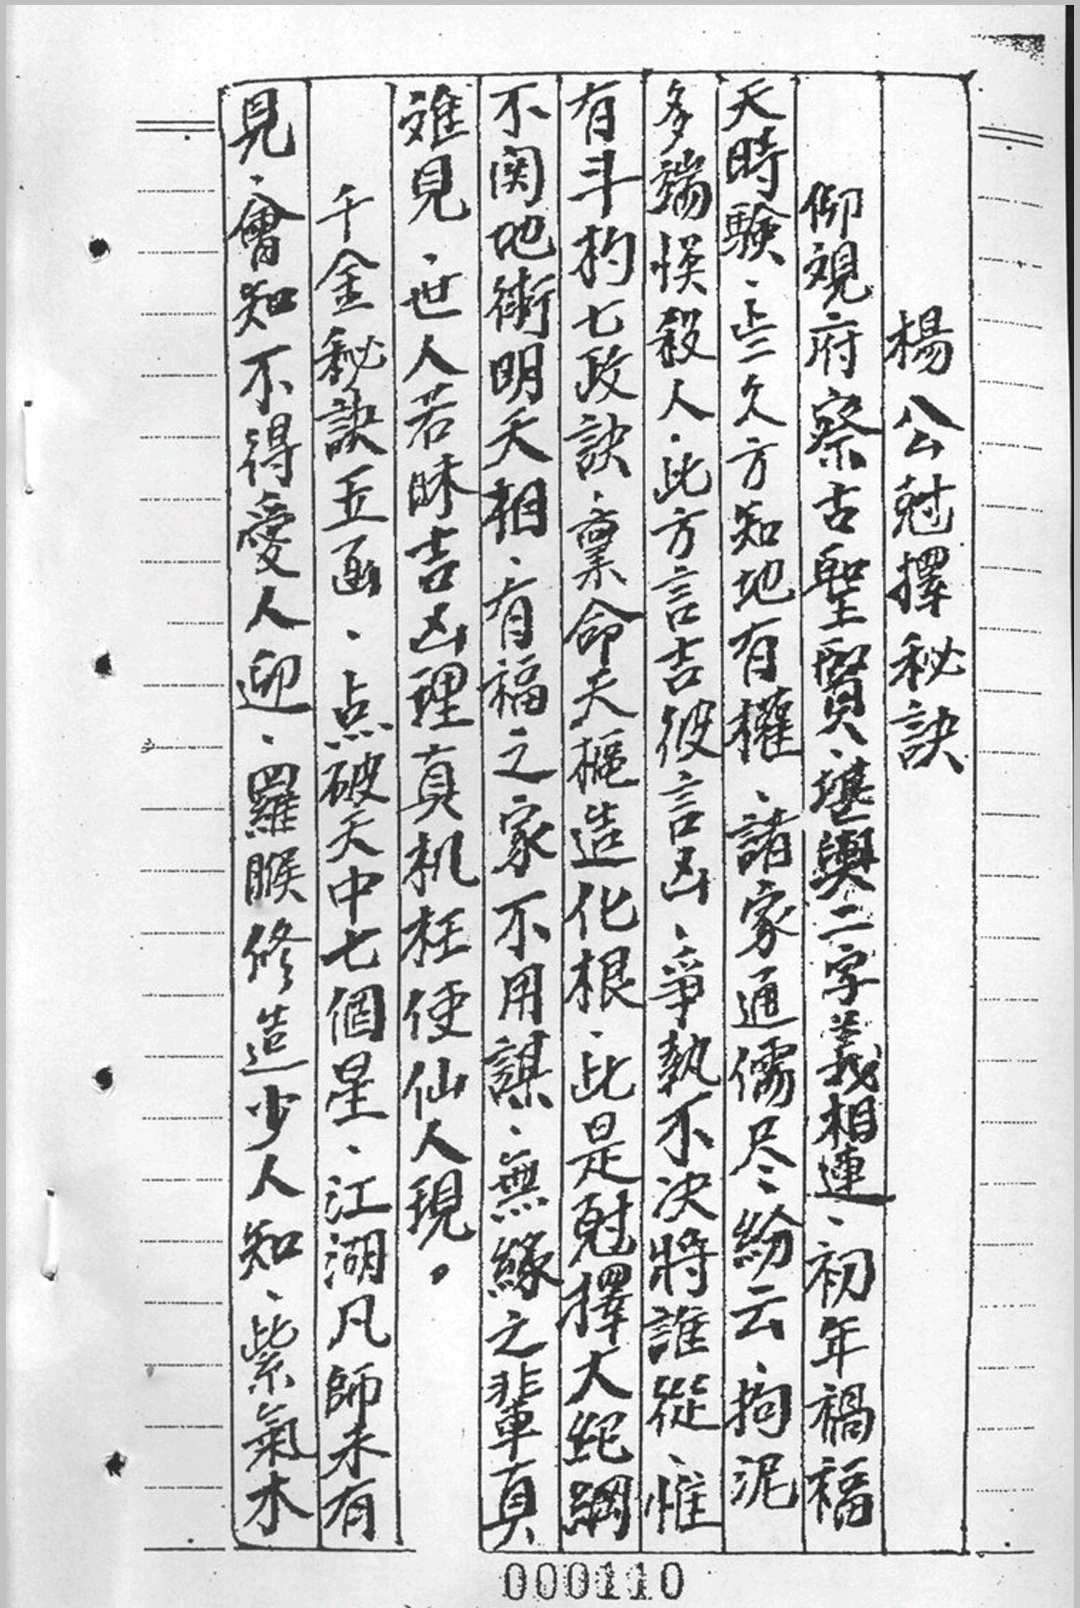 楊公尅擇秘訣
仰观府察古聖賢、堪輿二字義相連、初年禍福
天時験、岁久方知地有權、諸家通儒尽紛云、拘泥
多端悮殺人、此方言吉彼言凶、爭執不决將誰從、惟
有斗杓七政訣、稟命天樞造化根、此是尅擇大綂綱
不関地術明天相、有福之家不用謀、無緣之輩真
难見、世人若昧吉凶理真机枉使仙人現。
千金秘訣五函、点破天中七個星、江湖凡師未有
見、會知不得愛人迎、羅睺修造少人知、紫氣木
000110